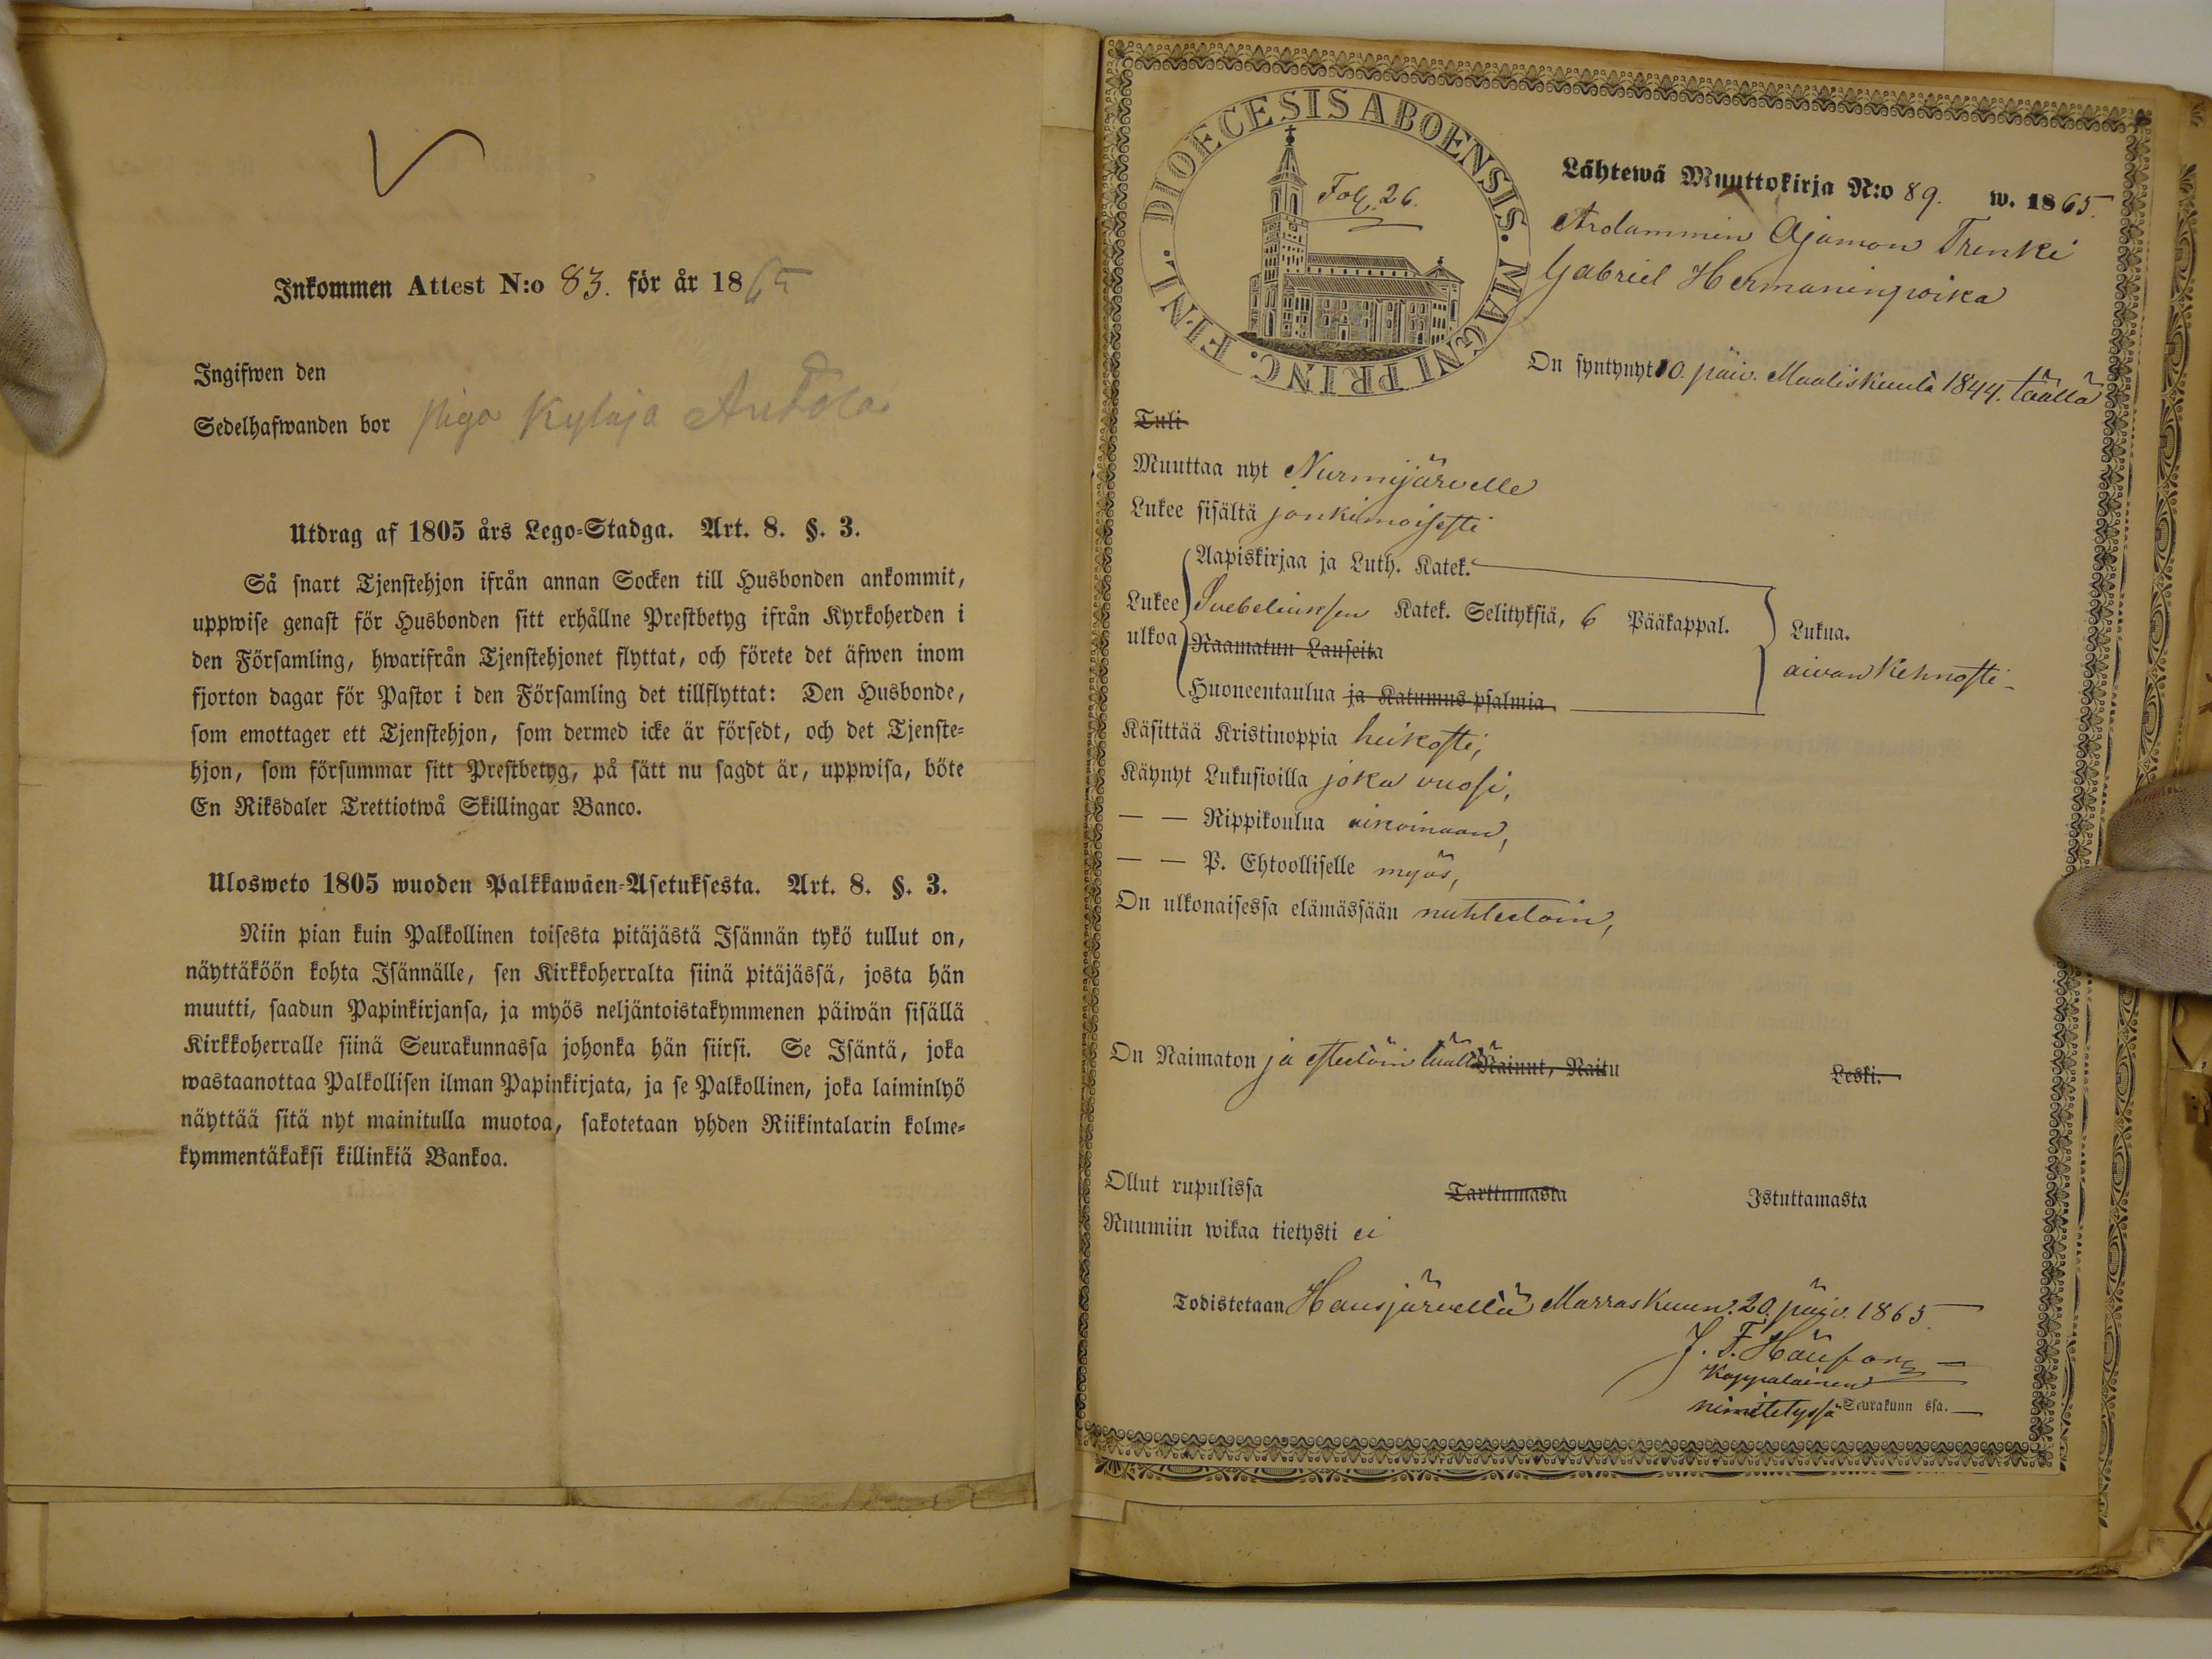 Inkommen Attest N:o 83. för år 1865
Ingifwen den
Sedelhafwanden bor piga Kyläja Andola
Utdrag af 1805 års Lego-Stadga. Art. 8. §. 3.
Så snart Tjenstehjon ifrån annan Socken till Husbonden ankommit,
uppwise genast för Husbonden sitt erhållne Prestbetyg ifrån Kyrkoherden i
den Församling, hwarifrån Tjenstehjonet flyttat, och förete det äfwen inom
fjorton dagar för Pastor i den Församling det tillflyttat: Den Husbonde,
som emottager ett Tjenstehjon, som dermed icke är försedt, och det Tjenste-
hjon, som försummar sitt Prestbetyg, på sätt nu sagdt är, uppwisa, böte
En Riksdaler Trettiotwå Skillingar Banco.
Ulosweto 1805 wuoden Palkkawäen-Asetuksesta. Art. 8. §. 3.
Niin pian kuin Palkollinen toisesta pitäjästä Isännän tykö tullut on,
näyttäköön kohta Isännälle, sen Kirkkoherralta siinä pitäjässä, josta hän
muutti, saadun Papinkirjansa, ja myös neljäntoistakymmenen päiwän sisällä
Kirkkoherralle siinä Seurakunnassa johonka hän siirsi. Se Isäntä, joka
wastaanottaa Palkollisen ilman Papinkirjata, ja se Palkollinen, joka laiminlyö
näyttää sitä nyt mainitulla muotoa, sakotetaan yhden Riikintalarin kolme-
kymmentäkaksi killinkiä Bankoa.
DIOECESIS ABOENSIS. MAGNI PRINC. FINL.
Fol. 26.
Lähtewä Muuttokirja N:o 89. w. 1865.
Ardammin Ajamon Trenki
Gabriel Hermaninpoika
On syntynyt 10. päiv. Maaliskuula 1844. täällä
Tuli
Muuttaa nyt Nurmijärvelle
Lukee sisältä jonkimoisesti
Aapiskirjaa ja Luth. Katek.
Lukee ulkoa Svebeliuksen Katek. Selityksiä, 6 Pääkappal. Lukua.
Raamatun Lauseita aivan kehnosti
Huoneentaulua ja Katumus psalmia
Käsittää Kristinoppia heikosti,
Käynyt Lukusioilla joka vuosi,
— — Rippikoulua aikoinaan,
— — P. Ehtoolliselle myös,
On ulkonaisessa elämässään nuhteetoin,
On Naimaton ja esteetöin täällä Nainut, Naitu Leski.
Ollut rupulissa Tarttumasta Istuttamasta
Ruumiin wikaa tietysti ei
Todistetaan Hausjärvellä Marraskuun. 20. päiv. 1865
J. F. Häufors
Kappalainen
nimitetyssä Seurakunn ssa.